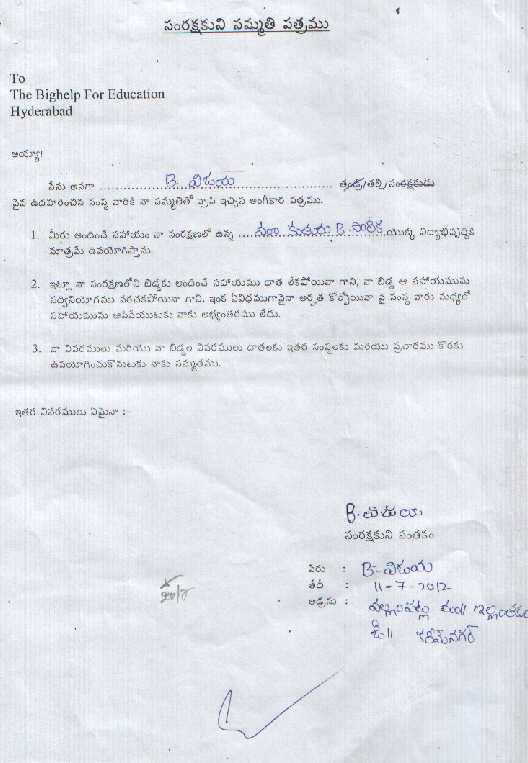 సంరక్షకుని సమ్మతి పత్రము
To
The Bighelp For Education
Hyderabad
అయ్యా!
నేను అనగా B. విజయ తండ్రి/తల్లి/సంరక్షకుడు
పైన ఉదహరించిన సంస్థ వారికి నా సమ్మతితో వ్రాసి ఇచ్చిన అంగీకార పత్రము.
1. మీరు అందించే సహాయం నా సంరక్షణలో ఉన్న కుమారి B. యొక్క విద్యాభివృద్ధికి
మాత్రమే ఉపయోగిస్తాను.
2. ఇట్లా నా సంరక్షణలోని బిడ్డకు అందించే సహాయము దాత లేకపోయినా గాని, నా బిడ్డ ఆ సహాయమును
సద్వినియోగము పరచకపోయినా గాని, ఇంక ఏవిధముగానైనా అర్హత కోల్పోయినా పై సంస్థ వారు మధ్యలో
సహాయమును ఆపివేయుటకు నాకు అభ్యంతరము లేదు.
3. నా వివరములు మరియు నా బిడ్డల వివరములు దాతలకు ఇతర సంస్థలకు మరియు ప్రచారము కొరకు
ఉపయోగించుకొనుటకు నాకు సమ్మతము.
ఇతర వివరములు ఏమైనా :-
B. విజయ
సంరక్షకుని సంతకం
పేరు : B. విజయ
తేదీ : 11-7-2012
అడ్రసు :
జి॥ కరీంనగర్